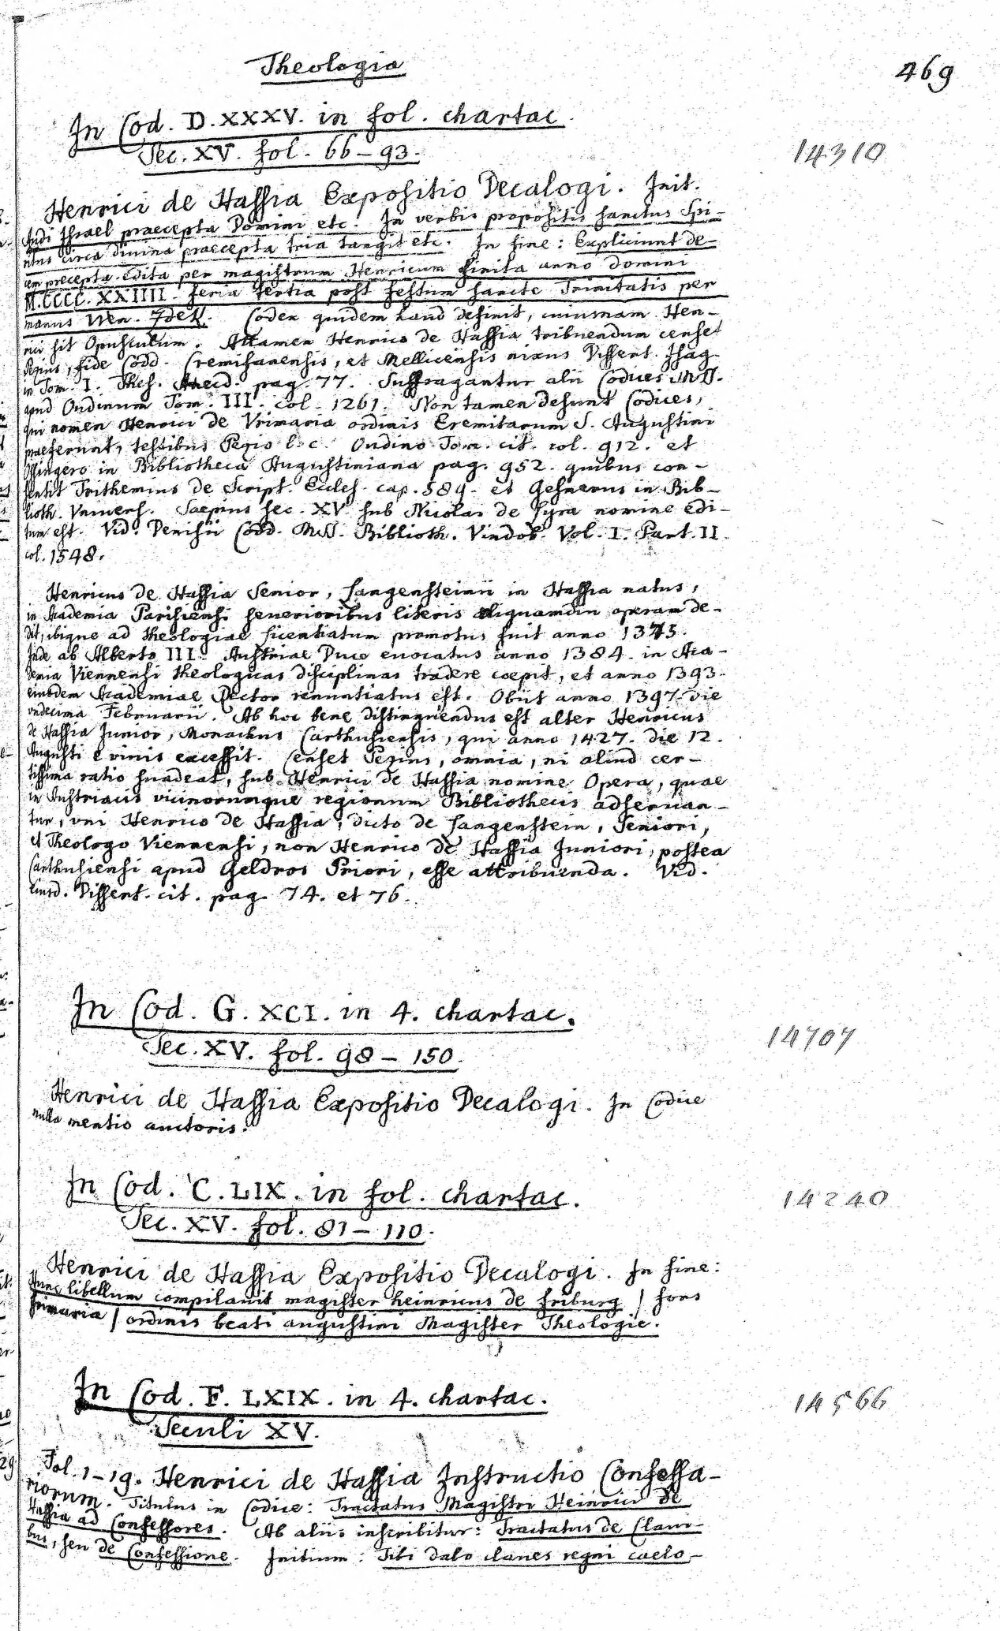 Theologia
469
In Cod. D. XXXV. in fol. chartac.
Sec. XV. fol. 66–93.
14310
Henrici de Hassia Expositio Decalogi. Init.
Audi Israel praecepta Domini etc. In verbis propositis sanctus Spi–
ritus circa divina praecepta tria tangit etc. In fine: Expliciunt de–
cem precepta edita per magistrum Henricum finita anno domini
M.CCCC.XXIIII. feria tertia post festum sancte Trinitatis per
manus Wen.
Codex quidem haud definit, cuiusnam Hen–
rici sit Opusculum. Attamen Henrico de Hassia tribuendum censet
Pezius, fide Codd. Cremifanensis, et Mellicensis nixus Dissert. Isag.
in Tom. I. Thes. Anecd. pag. 77. Suffragantur alii Codices MSS.
apud Oudinum Tom. III. col. 1261. Non tamen desunt Codices,
qui nomen Henrici de Vrimaria ordinis Eremitarum S. Augustini
praeferunt, testibus Pezio l. c. Oudino Tom. cit. col. 912. et
Ossingero in Bibliotheca Augustiniana pag. 952. quibus con–
sentit Trithemius de Script. Eccles. cap. 589. et Gesnerus in Bib–
lioth. Univers. Saepius sec. XV sub Nicolai de Lyra nomine edi–
tum est. Vid. Denisii Codd. MSS. Biblioth. Vindob. Vol. I. Part. II.
col. 1548.
Henricus de Hassia Senior, Langensteinii in Hassia natus,
in Academia Parisiensi severioribus literis aliquamdiu operam de–
dit, ibique ad theologiae licentiatum promotus fuit anno 1375.
Inde ab Alberto III. Austriae Duce euocatus anno 1384. in Aca–
demia Viennensi theologicas disciplinas tradere coepit, et anno 1393.
eiusdem Academiae Rector renuntiatus est. Obiit anno 1397. die
undecima Februarii. Ab hoc bene distinguendus est alter Henricus
de Hassia Junior, Monachus Carthusiensis, qui anno 1427. die 12.
Augusti e vivis excessit. Censet Pezius, omnia, ni aliud cer–
tissima ratio suadeat, sub Henrici de Hassia nomine Opera, quae
in Austriacis vicinorumque regionum Bibliothecis adseruan–
tur, vni Henrico de Hassia, dicto de Langenstein, Seniori,
et Theologo Viennensi, non Henrico de Hassia Juniori, postea
Carthusiensi apud Geldros Priori, esse attribuenda. Vid.
Eiusd. Dissert. cit. pag. 74. et 76.
In Cod. G. XCI. in 4. chartac.
Sec. XV. fol. 98–150.
14707
Henrici de Hassia Expositio Decalogi. In Codice
nulla mentio auctoris.
In Cod. C. LIX. in fol. chartac.
Sec. XV. fol. 81–110.
14240
Henrici de Hassia Expositio Decalogi. In fine:
Hunc libellum compilauit magister heinricus de friburg / fors
frimaria / ordinis beati augustini Magister Theologie.
In Cod. F. LXIX. in 4. chartac.
Seculi XV.
14566
Fol. 1–19. Henrici de Hassia Instructio Confessa–
riorum. Titulus in Codice: Tractatus Magistri Heinrici de
Hassia ad Confessores. Ab aliis inscribitur: Tractatus de Claui–
bus, seu de Confessione. Initium: Tibi dabo claues regni caelo–